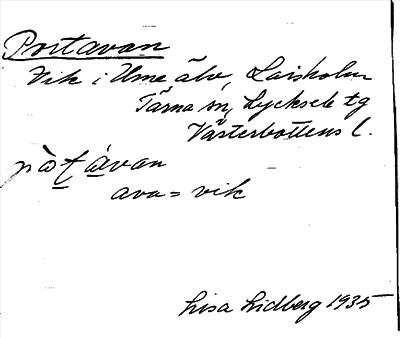 Portavan
Vik i Ume älv, Laisholm
Tärna sn, Lycksele tg
Västerbottens l.
påt ávan
ava = vik
Lisa Lidberg 1935